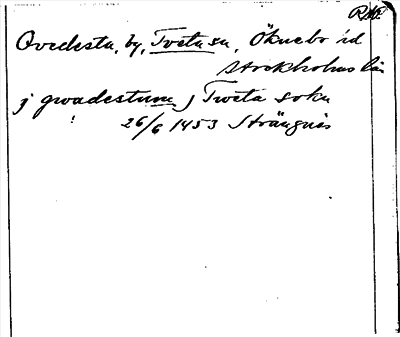 RAP.
Qvedesta, by, Tveta sn, Öknebo hd
Stockholms län
j qwadestum j Tweta sokn
26/6 1453 Strängnäs